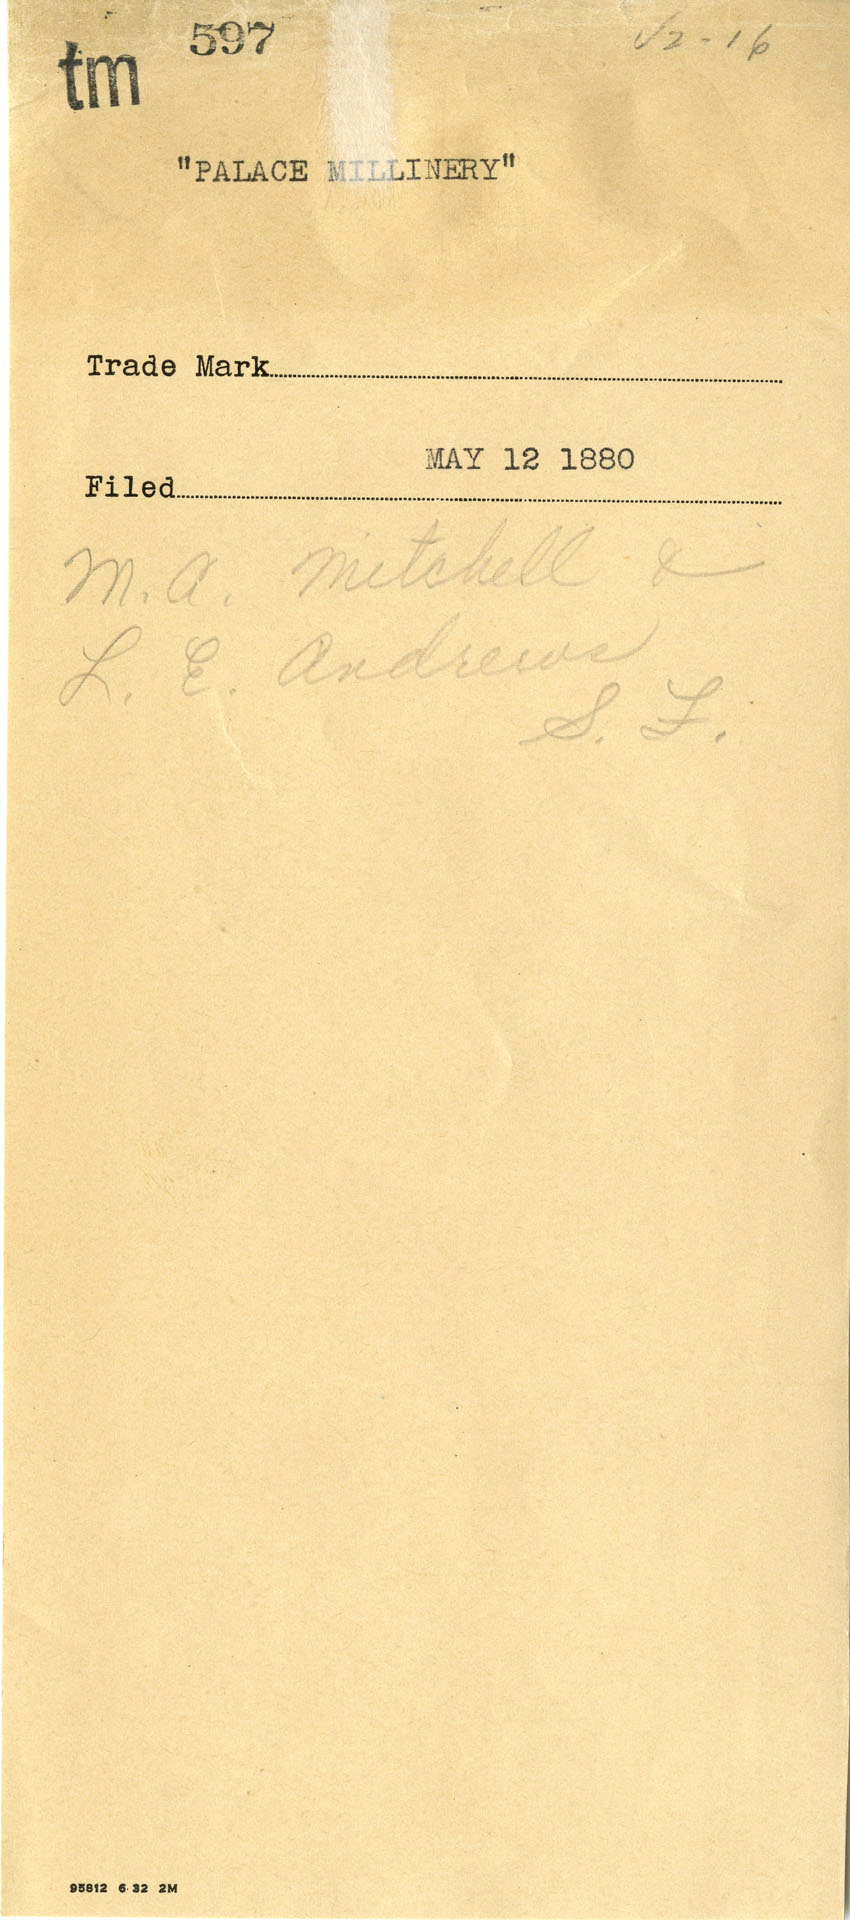 tm 597 √2-16
"PALACE MILLINERY"
Trade Mark
MAY 12 1880
Filed
M. A. Mitchell &
L. E. Andrews
S. F.
95812 6-32 2M